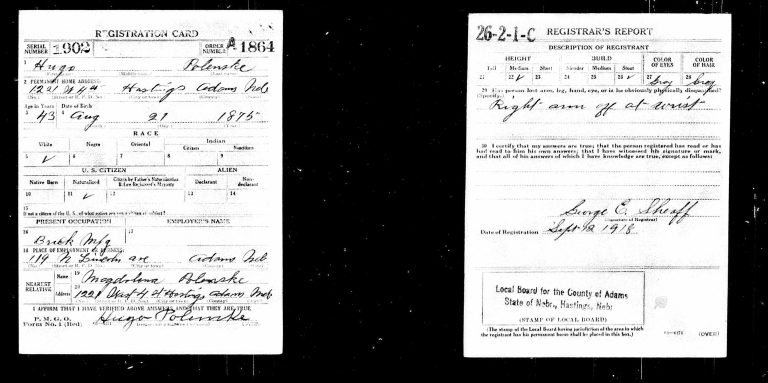 REGISTRATION CARD
SERIAL NUMBER 1902 ORDER NUMBER A 1864
1 Hugo Polenske
2 PERMANENT HOME ADDRESS:
1221 W 4th Hastings Adams Neb
Age in Years Date of Birth
3 43 4 Aug 21 1875
RACE
White Negro Oriental Indian
Citizen Noncitizen
5 ✓ 6 7 8 9
U. S. CITIZEN ALIEN
Native Born Naturalized Citizen by Father's Naturalization Before Registrant's Majority Declarant Non-declarant
10 11 ✓ 12 13 14
15
If not a citizen of the U. S., of what nation are you a citizen or subject?
PRESENT OCCUPATION EMPLOYER'S NAME
16 17
Brick Mfg
18 PLACE OF EMPLOYMENT OR BUSINESS:
119 N Lincoln ave Adams Neb
NEAREST RELATIVE Name 19 Magdalena Polenske
Address 20 1221 West 4 st Hastings Adams Neb
I AFFIRM THAT I HAVE VERIFIED ABOVE ANSWERS AND THAT THEY ARE TRUE
P. M. G. O.
Form No. 1 (Red) Hugo Polenske
26-2-1-C REGISTRAR'S REPORT
DESCRIPTION OF REGISTRANT
HEIGHT BUILD COLOR OF EYES COLOR OF HAIR
Tall Medium Short Slender Medium Stout
21 22 ✓ 23 24 25 26 ✓ 27 Gray 28 Gray
29 Has person lost arm, leg, hand, eye, or is he obviously physically disqualified?
(Specify.)
Right arm off at wrist
30 I certify that my answers are true; that the person registered has read or has
had read to him his own answers; that I have witnessed his signature or mark,
and that all of his answers of which I have knowledge are true, except as follows:
George E. Sheaff
(Signature of Registrar)
Date of Registration Sept 12 1918
Local Board for the County of Adams
State of Nebr., Hastings, Neb:
(STAMP OF LOCAL BOARD)
(The stamp of the Local Board having jurisdiction of the area in which
the registrant has his permanent home shall be placed in this box.)
(OVER)